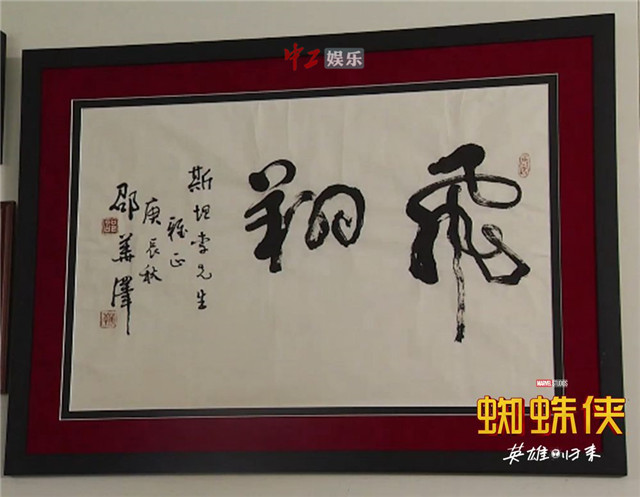 中工娱乐
飛翔
斯坦李先生
雅正
庚辰秋
邵華澤
MARVEL STUDIOS
蜘蛛侠
英雄归来